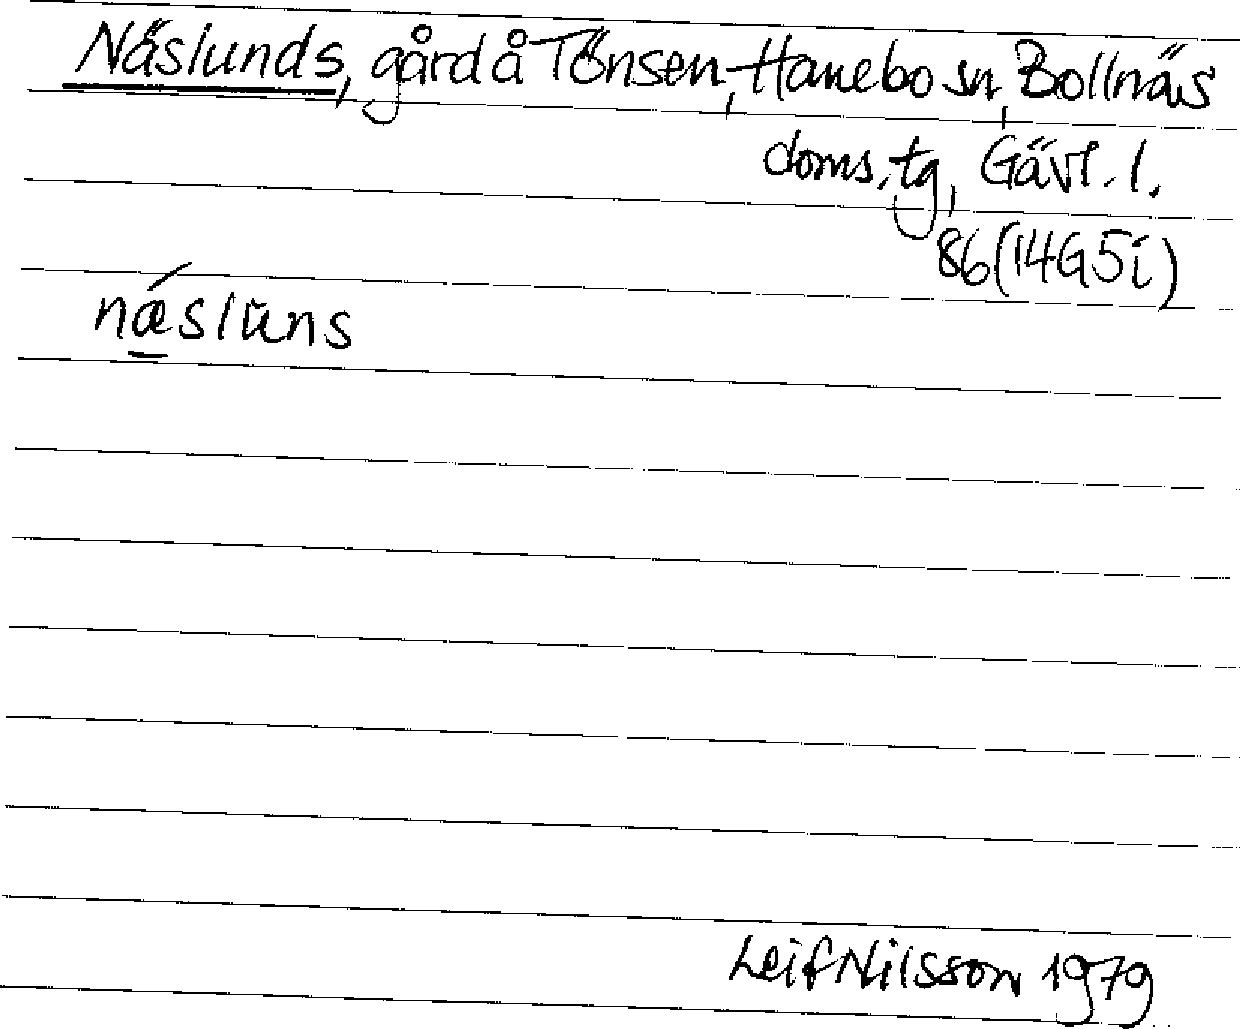 Näslunds, gård å Tönsen, Hanebo sn, Bollnäs
doms. tg, Gävl. l.
86 (14G5i)
nǽslŭns
Leif Nilsson 1979